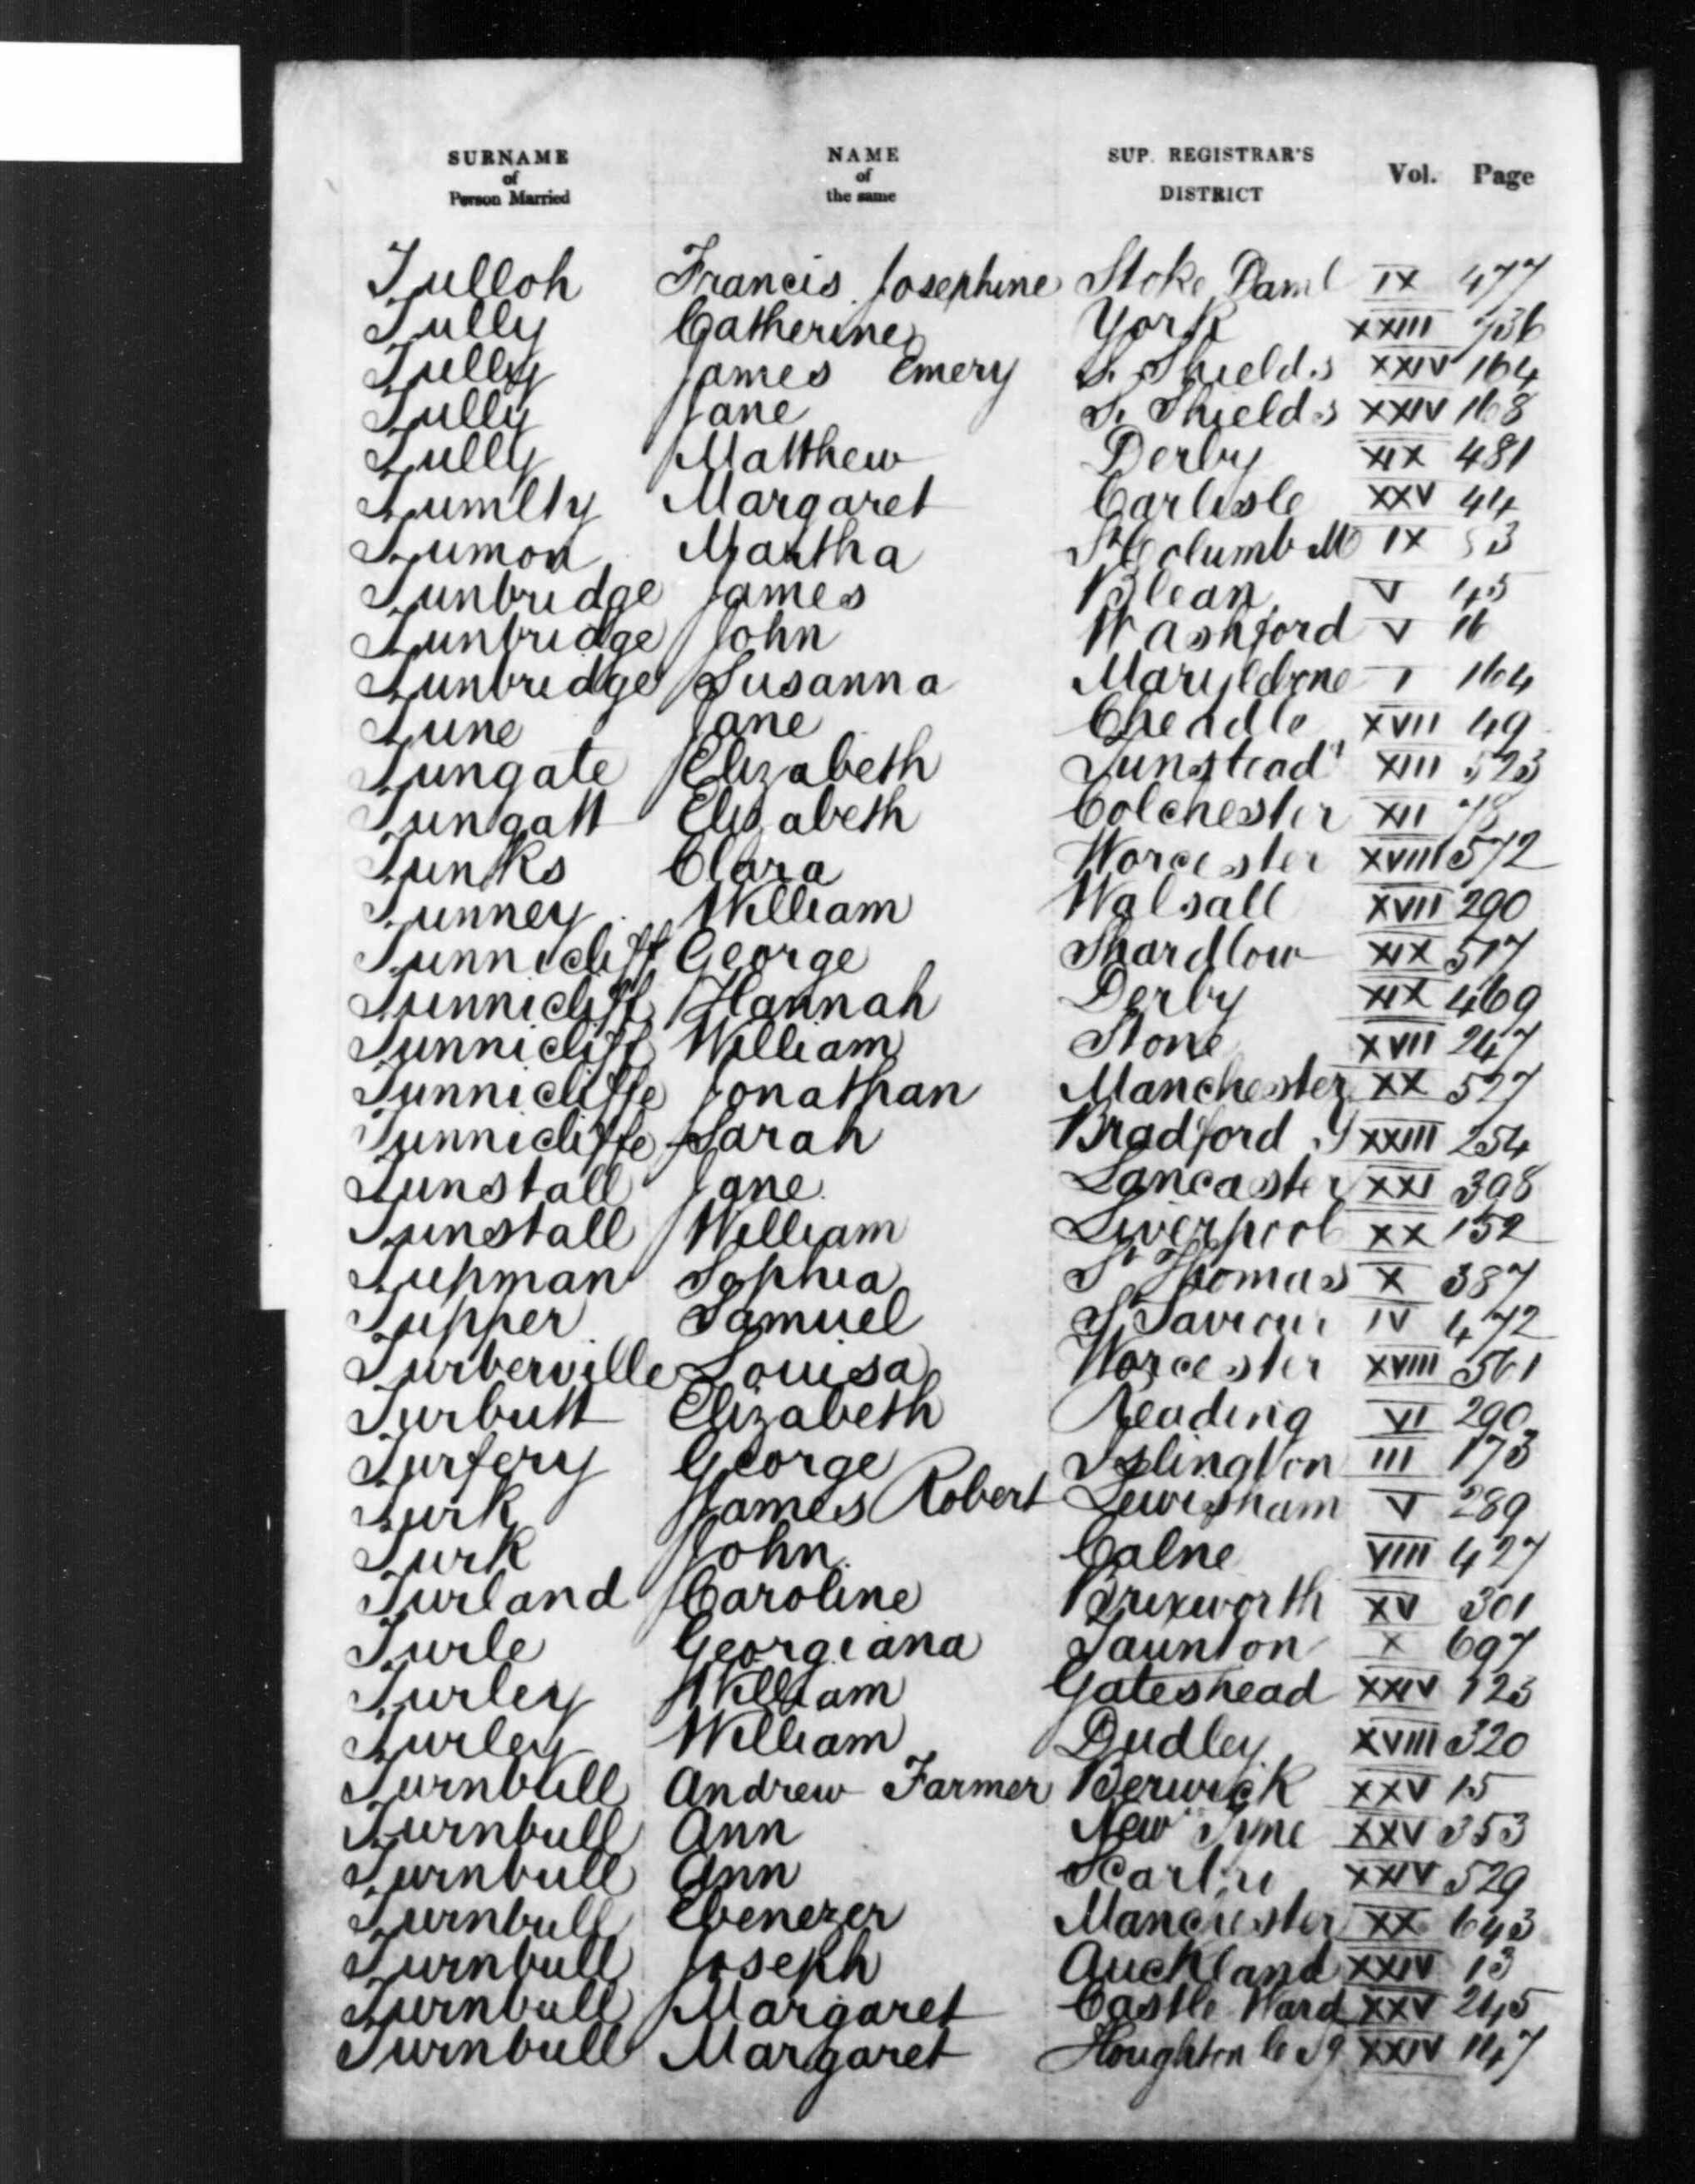 SURNAME of Person Married NAME of the same SUP. REGISTRAR'S DISTRICT Vol. Page
Tulloh Francis Josephine Stoke Daml IX 477
Tully Catherine York XXIII 736
Tully James Emery S. Shields XXIV 164
Tully Jane S. Shields XXIV 168
Tully Matthew Derby XIX 481
Tumlty Margaret Carlisle XXV 44
Tumon Martha St Columb M IX 53
Tunbridge James Blean V 45
Tunbridge John W Ashford V 16
Tunbridge Susanna Marylebone I 164
Tune Jane Cheadle XVII 49
Tungate Elizabeth Tunstead XIII 523
Tungatt Elizabeth Colchester XII 78
Tunks Clara Worcester XVIII 572
Tunney William Walsall XVII 290
Tunnicliff George Shardlow XIX 517
Tunnicliff Hannah Derby XIX 469
Tunnicliff William Stone XVII 247
Tunnicliffe Jonathan Manchester XX 527
Tunnicliffe Sarah Bradford Y XXIII 254
Tunstall Jane Lancaster XXI 398
Tunstall William Liverpool XX 152
Tupman Sophia St Thomas X 387
Tupper Samuel St Saviour IV 472
Turberville Louisa Worcester XVIII 561
Turbutt Elizabeth Reading VI 290
Turfery George Islington III 173
Turk James Robert Lewisham V 289
Turk John Calne VIII 427
Turland Caroline Brixworth XV 301
Turle Georgiana Taunton X 697
Turley William Gateshead XXIV 123
Turley William Dudley XVIII 320
Turnbull Andrew Farmer Berwick XXV 15
Turnbull Ann New Tyne XXV 353
Turnbull Ann Scarbro XXIV 529
Turnbull Ebenezer Manchester XX 643
Turnbull Joseph Auckland XXIV 13
Turnbull Margaret Castle Ward XXV 245
Turnbull Margaret Houghton le Sg XXIV 147